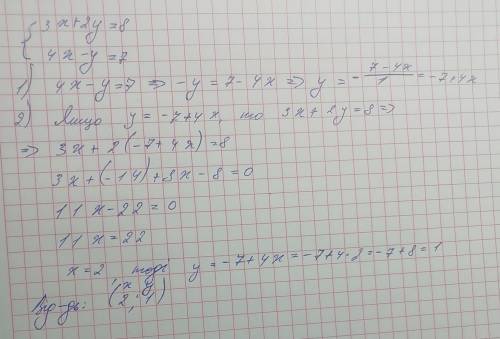 { 3x+2y=8
4x-y=7
1) 4x-y=7 => -y=7-4x => y= -(7-4x)/1 = -7+4x
2) Якщо y=-7+4x, то 3x+2y=8=>
=> 3x+2(-7+4x)=8
3x+(-14)+8x-8=0
11x-22=0
11x=22
x=2 тоді y=-7+4x=-7+4·2=-7+8=1
x y
Від-дь: (2; 1)